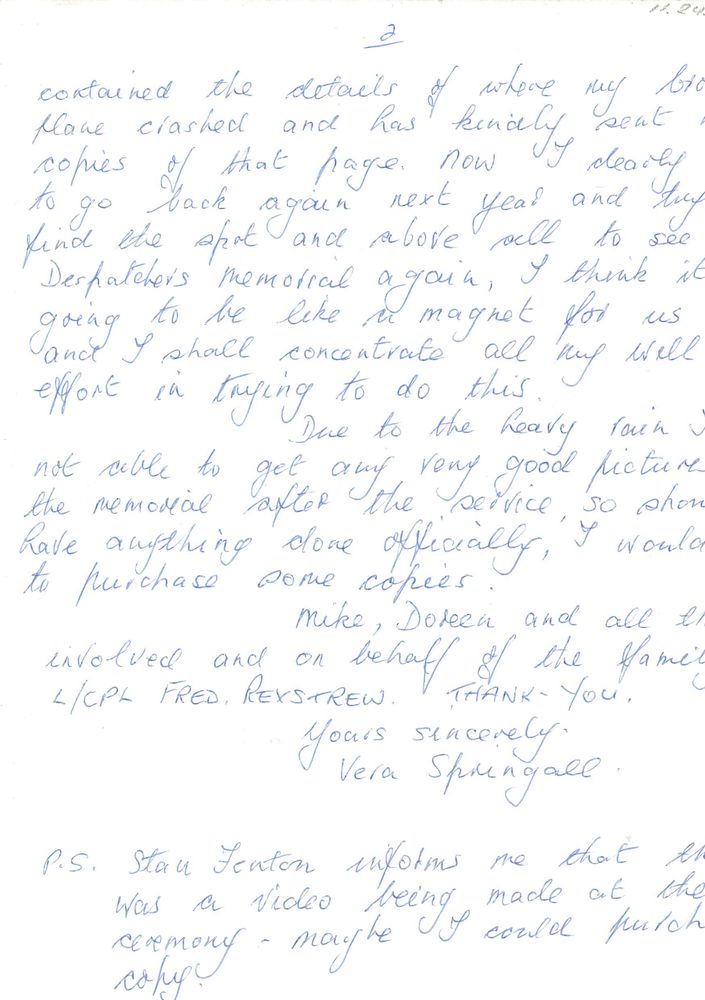 11.24.
2
contained the details of where my bro
plane crashed and has kindly sent
copies of that page. Now I dearly
to go back again next year and try
find the spot and above all to see
Despatchers memorial again, I think it
going to be like a magnet for us
and I shall concentrate all my will
effort in trying to do this.
Due to the heavy rain I
not able to get any very good picture
the memorial after the service, so shou
have anything done officially, I would
to purchase some copies.
Mike, Doreen and all th
involved and on behalf of the family
L/CPL FRED. REXSTREW. THANK-YOU.
Yours sincerely.
Vera Springall.
P.S. Stan Fenton informs me that th
was a video being made at the
ceremony - maybe I could purch
copy.